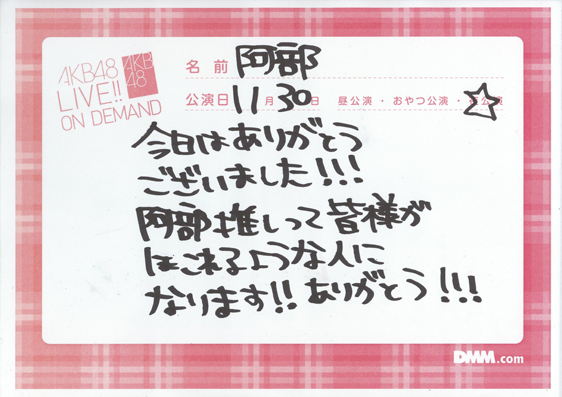 AKB48
LIVE!!
ON DEMAND
AKB
48
名前 阿部
公演日 11月30日 昼公演・おやつ公演・夜公演
今日はありがとう
ございました!!!
阿部推しって皆様が
ほこれるような人に
なります!!ありがとう!!!
DMM.com